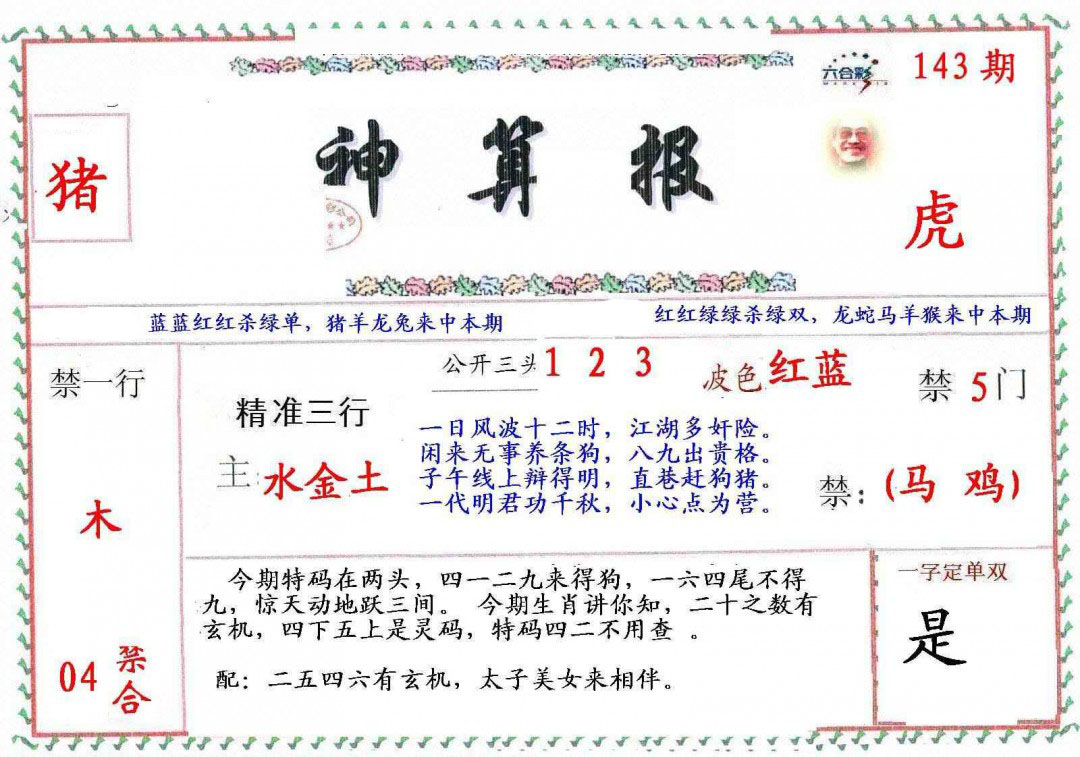 六合彩
143期
猪
神算报
虎
蓝蓝红红杀绿单，猪羊龙兔来中本期
红红绿绿杀绿双，龙蛇马羊猴来中本期
禁一行
木
04 禁合
精准三行
主:水金土
公开三头 1 2 3
波色 红蓝
禁 5 门
一日风波十二时，江湖多奸险。
闲来无事养条狗，八九出贵格。
子午线上辩得明，直巷赶狗猪。
一代明君功千秋，小心点为营。
禁：(马 鸡)
今期特码在两头，四一二九来得狗，一六四尾不得
九，惊天动地跃三间。 今期生肖讲你知，二十之数有
玄机，四下五上是灵码，特码四二不用查 。
配：二五四六有玄机，太子美女来相伴。
一字定单双
是